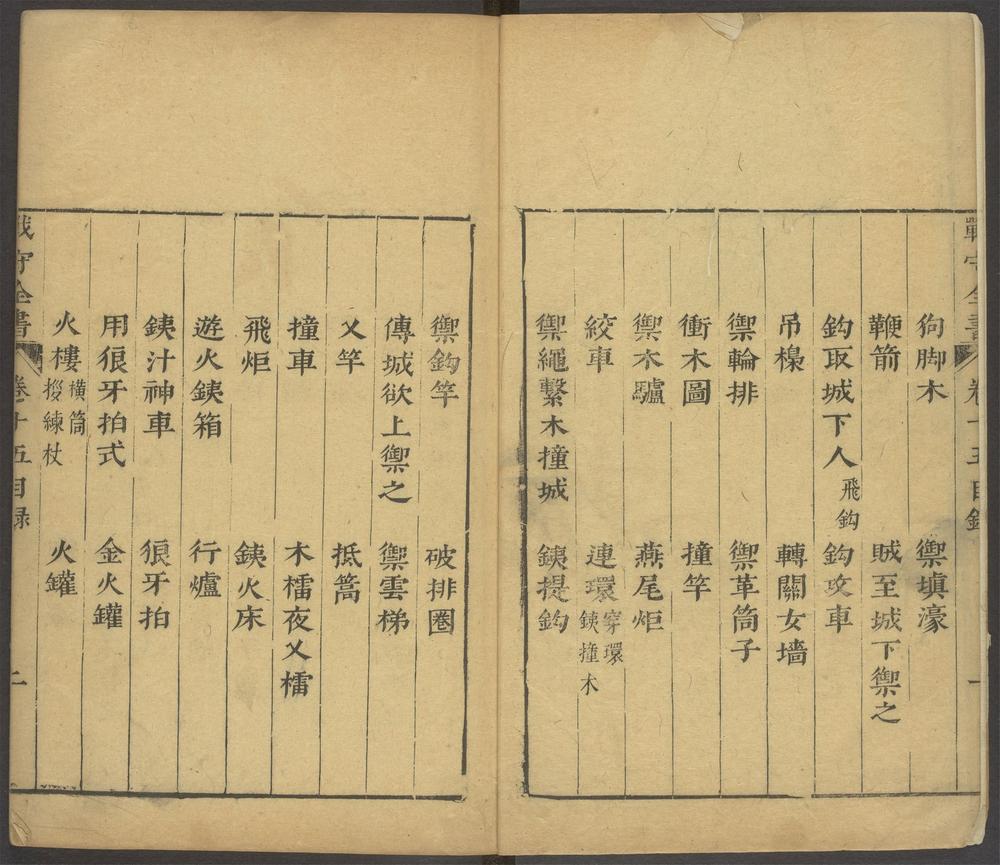 戰守全書 卷十五目錄 一
狗脚木 禦塡濠
鞭箭 賊至城下禦之
鈎取城下人 飛鈎 鈎攻車
吊槹 轉關女墻
禦輪排 禦革筒子
衝木圖 撞竿
禦木驢 燕尾炬
絞車 連環 穿環 鐵撞木
禦繩繫木撞城 鐵提鈎
禦鈎竿 破排圈
傳城欲上禦之 禦雲梯
乂竿 抵蒿
撞車 木檑夜乂檑
飛炬 鐵火床
遊火鐵箱 行爐
鐵汁神車 狼牙拍
用狼牙拍式 金火罐
火樓 橫筒 援練杖 火罐
戰守全書 卷十五目錄 二